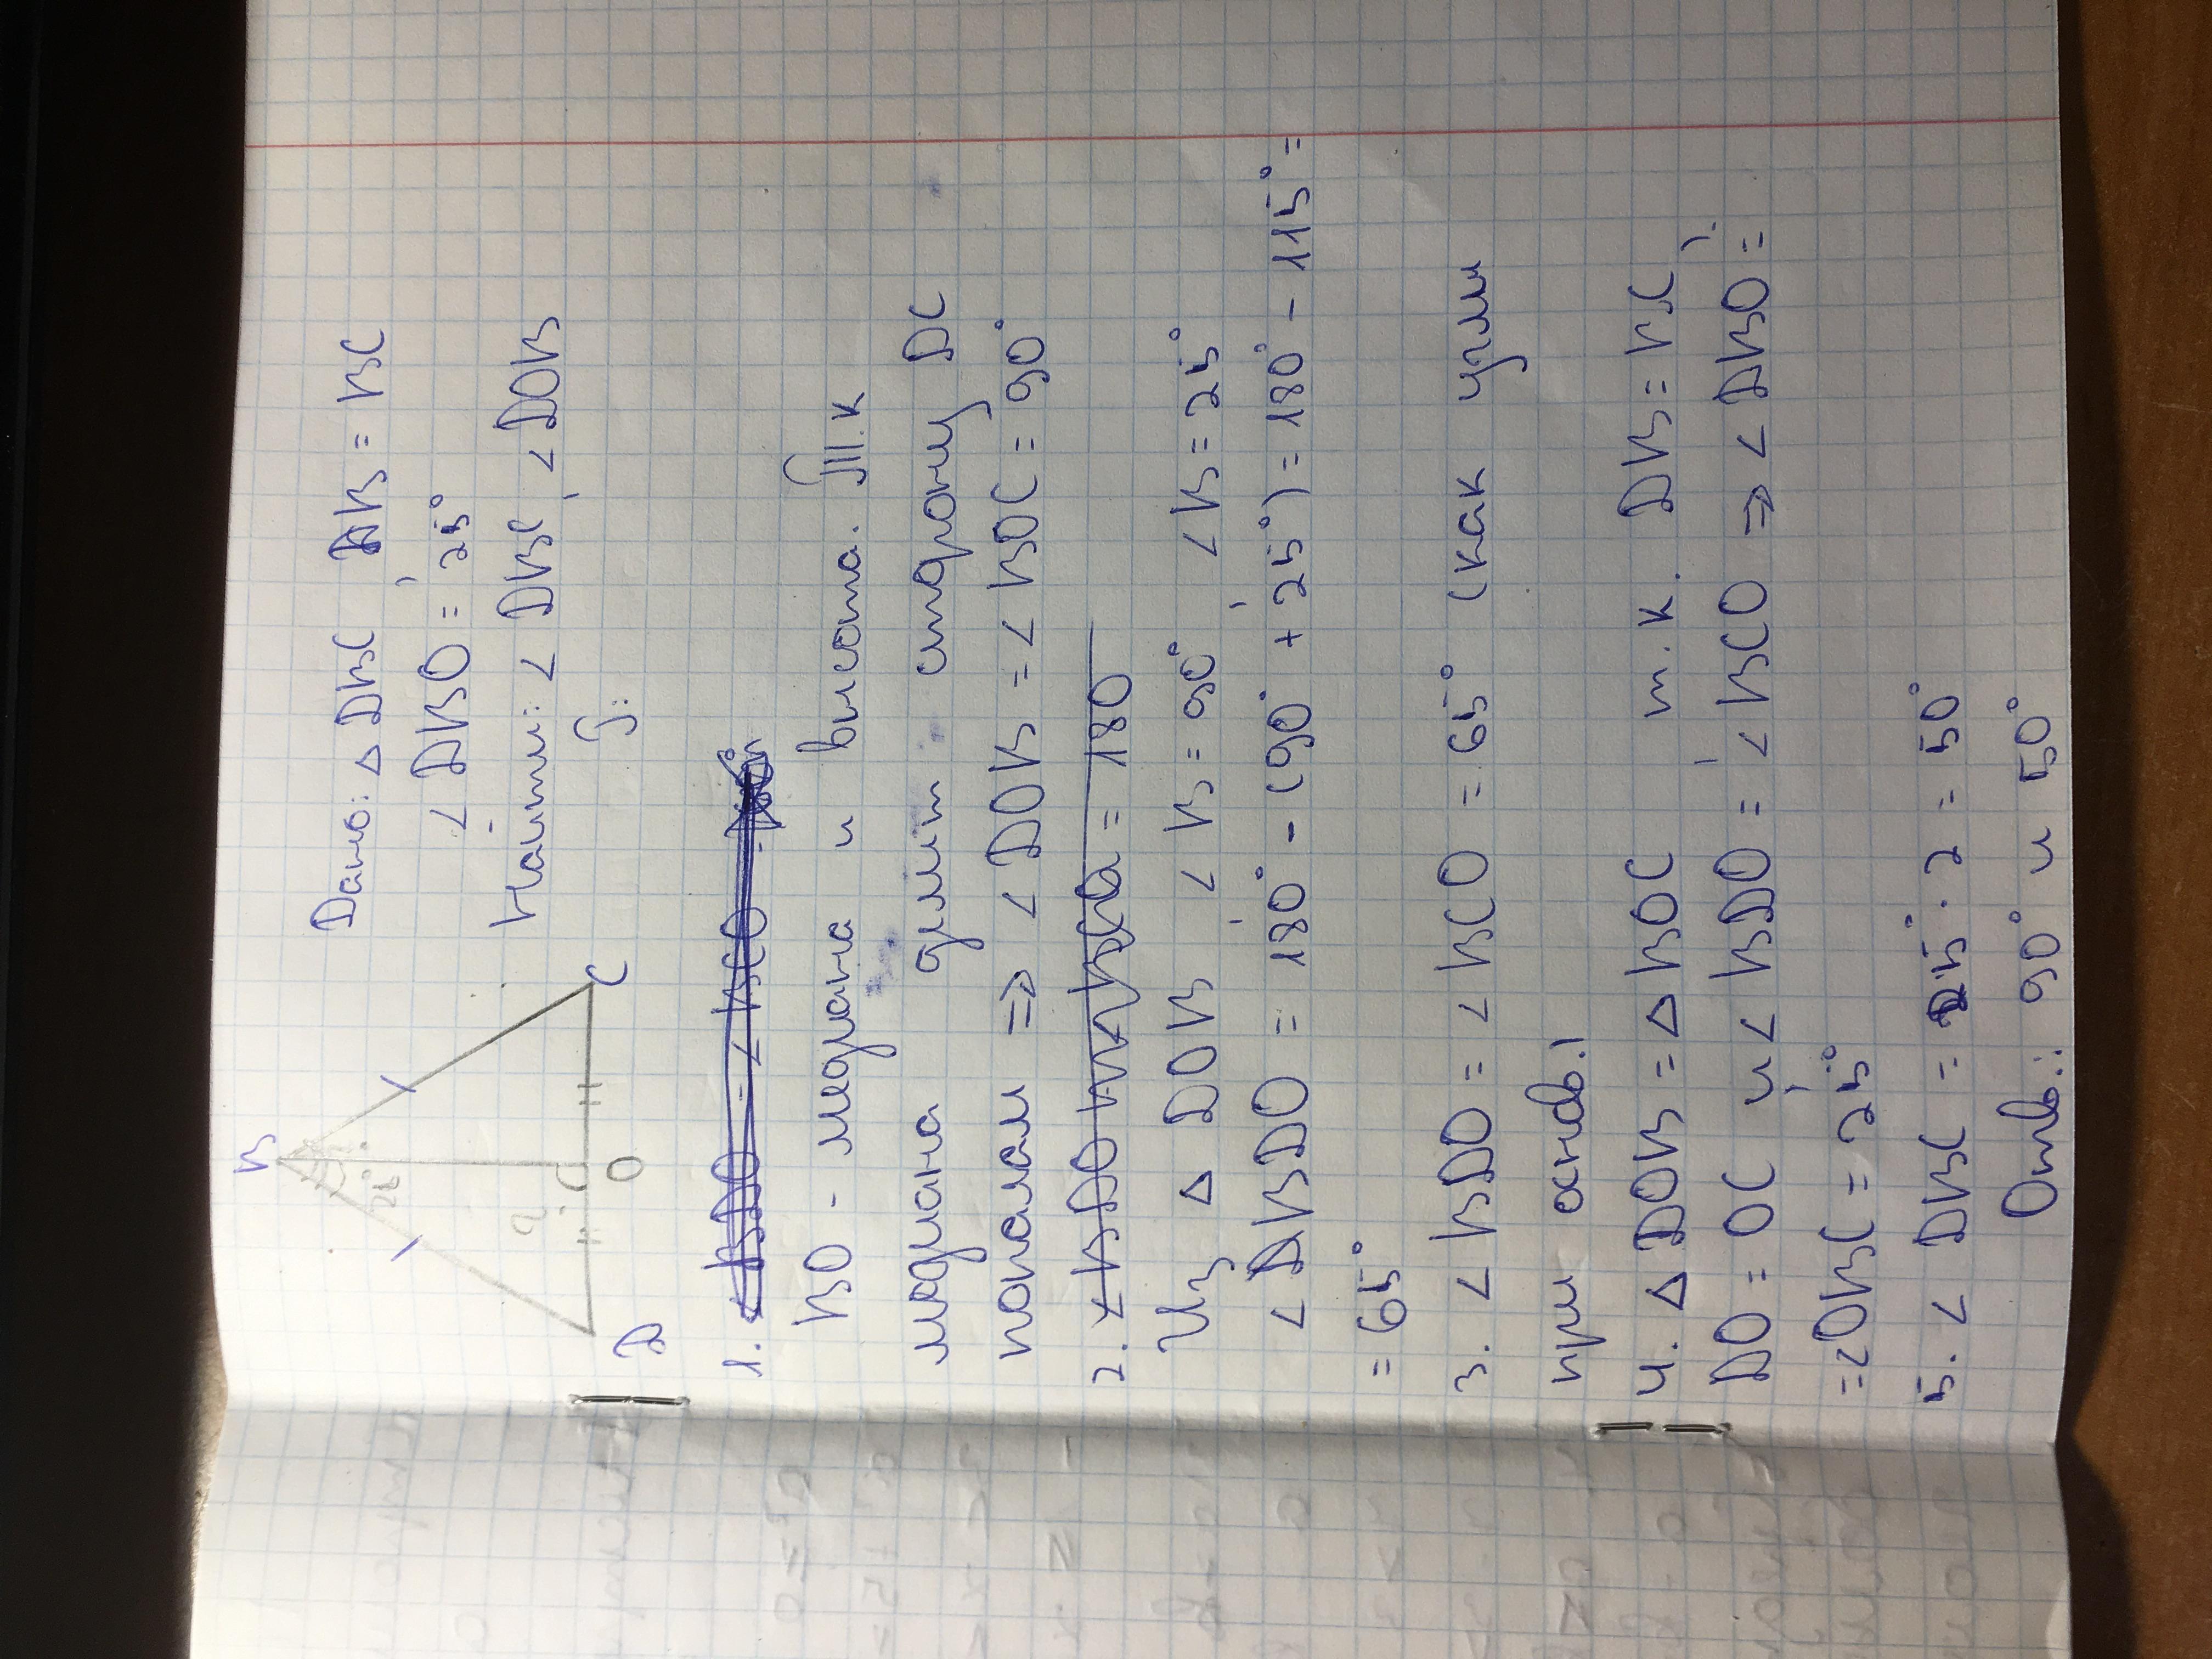 B
25°
D
O
C
Дано: △ DBC DB = BC
∠ DBO = 25°
Найти: ∠ DBC, ∠DOB
1.
BO - медиана и высота. Т.к
медиана делит сторону DC
пополам => ∠ DOB = ∠ BOC = 90°
2.
Из △ DOB, ∠ B = 90°, ∠B = 25°
∠ DBDO = 180° - (90° + 25°) = 180° - 115° =
= 65°
3. ∠ BDO = ∠ BCO = 65° (как углы
при основ.)
4. △ DOB = △ BOC т.к. DB = BC,
DO = OC и ∠ BDO = ∠ BCO => ∠ DBO =
= ∠OBC = 25°
5. ∠ DBC = 25° · 2 = 50°
Отв.: 90° и 50°